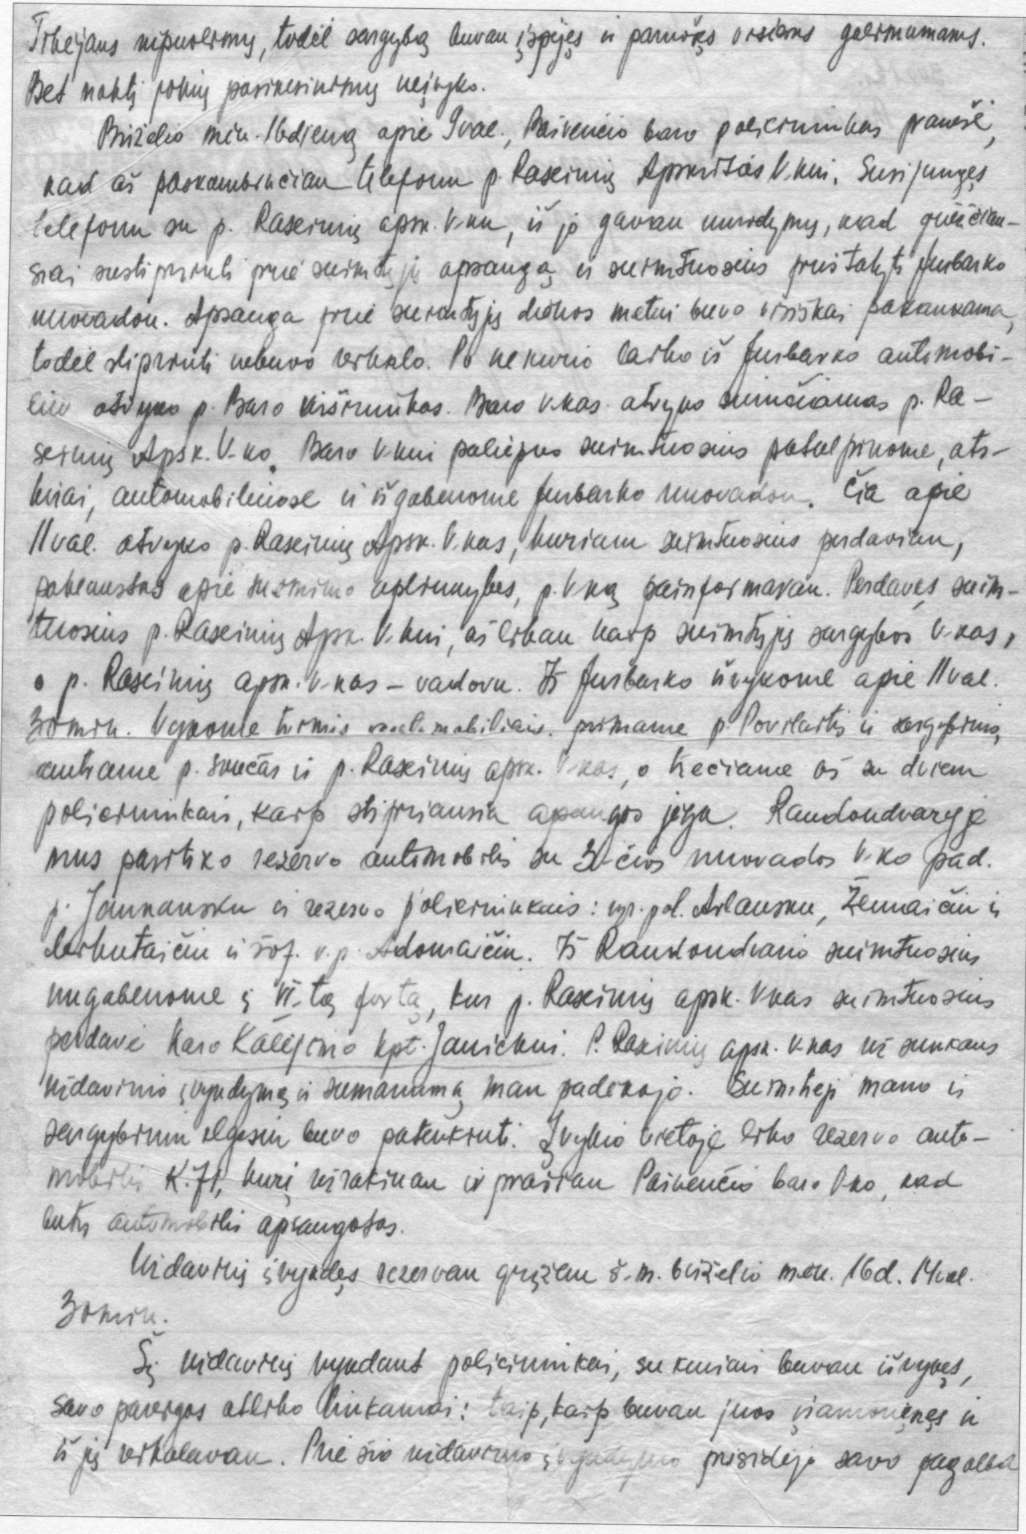 užpuolimų, todėl sargybą buvau įspėjęs ir paruošęs visiems galimumams.
Bet naktį jokių pasikesinimų neįvyko.
Birželio mėn. 16 dieną apie 9 val., Pašvenčio baro policininkas pranešė,
kad aš paskambinčiau telefonu p. Raseinių Apskrities V-kui. Susijungęs
telefonu su p. Raseinių apsk. V-ku, iš jo gavau nurodymų, kad griežčiau-
siai sustiprinti prie suimtųjų apsaugą ir suimtuosius pristatyti Jurbarko
nuovadon. Apsauga prie suimtųjų dienos metu buvo visiškai pakankama,
todėl stiprinti nebuvo reikalo. Po nekurio laiko iš Jurbarko automobi-
liu atvyko p. Baro Viršininkas. Baro V-kas atvyko siunčiamas p. Ra-
seinių Apsk. V-ko. Baro V-kui paliepus suimtuosius patalpinome, ats-
kirai, automobiliuose ir išgabenome Jurbarko nuovadon. Čia apie
11 val. atvyko p. Raseinių Apsk. V-kas, kuriam suimtuosius perdaviau,
paklaustas apie suėmimo aplinkybes, p. V-ką painformavau. Perdavęs suim-
tuosius p. Raseinių Apsk. V-kui, aš likau kaip suimtųjų sargybos V-kas,
o p. Raseinių apsk. V-kas – vadovu. Iš Jurbarko išvykome apie 11 val.
30 min. Vykome trimis automobiliais: pirmame p. Povilaitis ir sargybinis,
antrame p. Skučas ir p. Raseinių apsk. V-kas, o trečiame aš su dviem
policininkais, kaip stipriausia apsaugos jėga. Raudondvaryje
mus pasitiko rezervo automobilis su 3-čios nuovados V-ko pad.
p. Jankausku ir rezervo policininkais: vyr. pol. Arlausku, Žemaičiu ir
ir šof. v.p. Adomaičiu. Iš Raudondvario suimtuosius
nugabenome į VI-tą fortą, kur p. Raseinių apsk. V-kas suimtuosius
perdavė Karo Kalėjimo kpt. Janickui. P. Raseinių apsk. V-kas už sunkaus
uždavinio įvykdymą ir sumanumą man padėkojo. Suimtieji mano ir
sargybinių elgesiu buvo patenkinti. Įvykio vietoje liko rezervo auto-
mobilis K. 71, kurį užrakinau ir prašiau Pašvenčio baro V-ko, kad
būtų automobilis apsaugotas.
Uždavinį įvykdęs rezervan grįžau š.m. birželio mėn. 16 d. 14 val.
30 min.
Šį uždavinį vykdant policininkai, su kuriais buvau išvykęs,
savo pareigas atliko tinkamai: taip, kaip buvau juos įsamoninęs ir
iš jų reikalavau. Prie šio uždavinio įvykdymo prisidėjo savo pagalba